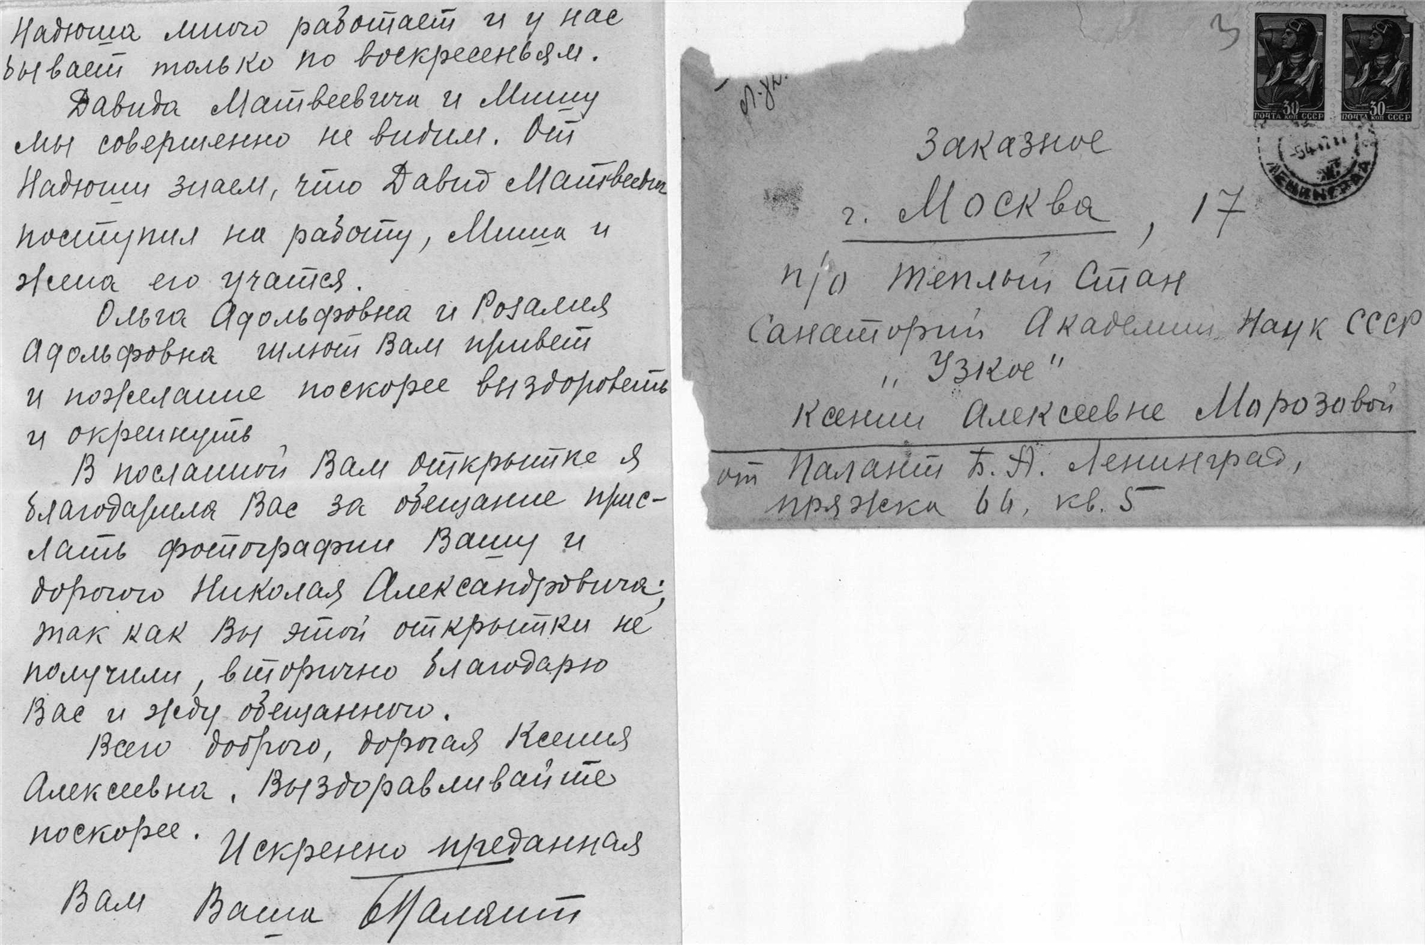 Надюша много работает и у нас
бывает только по воскресеньям.
Давида Матвеевича и Мишу
мы совершенно не видим. От
Надюши знаем, что Давид Матвеевич
поступил на работу, Миша и
жена его учатся.
Ольга Адольфовна и Розалия
Адольфовна шлют Вам привет
и пожелание поскорее выздороветь
и окрепнуть
В посланной Вам открытке я
благодарила Вас за обещание прис-
лать фотографии Вашу и
дорогого Николая Александровича;
так как Вы этой открытки не
получили, вторично благодарю
Вас и жду обещанного.
Всего доброго, дорогая Ксения
Алексеевна. Выздоравливайте
поскорее.
Искренно преданная
Вам Ваша БПалант
3
30 30
ПОЧТА КОП СССР ПОЧТА КОП СССР
ЛЕНИНГРАД
Заказное
г. Москва, 17
п/о Теплый Стан
Санаторий Академии Наук СССР
„Узкое"
Ксении Алексеевне Морозовой
от Палант Б. А. Ленинград,
пряжка 64, кв. 5